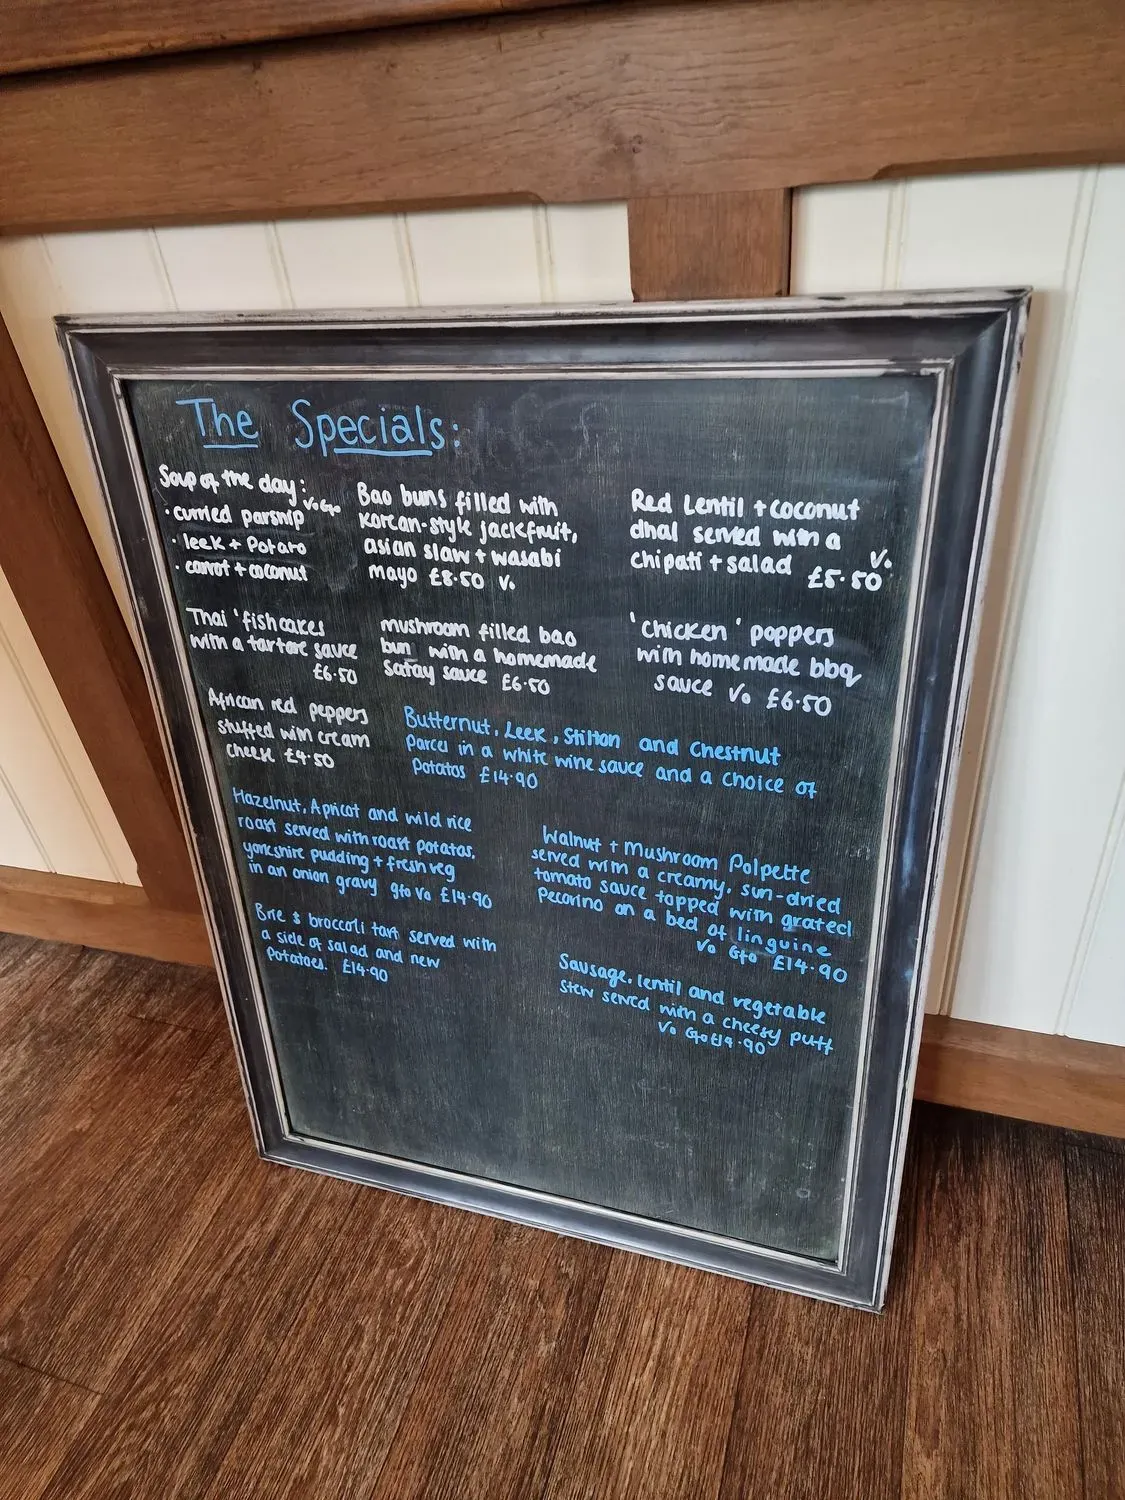 The Specials:
Soup of the day:
Vo Gfo
• curried parsnip
• leek + Potato
• carrot + coconut
Bao buns filled with
korean-style jackfruit,
asian slaw + wasabi
mayo £8.50 V.
Red Lentil + coconut
dhal served with a
chipati + salad V.
£5.50
Thai 'fishcakes
with a tartare sauce
£6.50
mushroom filled bao
bun with a homemade
Satay sauce £6.50
'chicken' poppers
with homemade bbq
sauce Vo £6.50
African red peppers
stuffed with cream
cheese £4.50
Butternut, Leek, Stilton and Chestnut
Parcel in a white wine sauce and a choice of
Potatos £14.90
Hazelnut, Apricot and wild rice
roast served with roast potatos,
yorkshire pudding + fresh veg
in an onion gravy gfo Vo £14.90
Walnut + Mushroom Polpette
served with a creamy, sun-dried
tomato sauce topped with grated
Pecorino on a bed of linguine
Vo Gfo £14.90
Brie & broccoli tart served with
a side of salad and new
Potatoes. £14.90
Sausage, lentil and vegetable
stew served with a cheesy puff
Vo Gfo £14.90